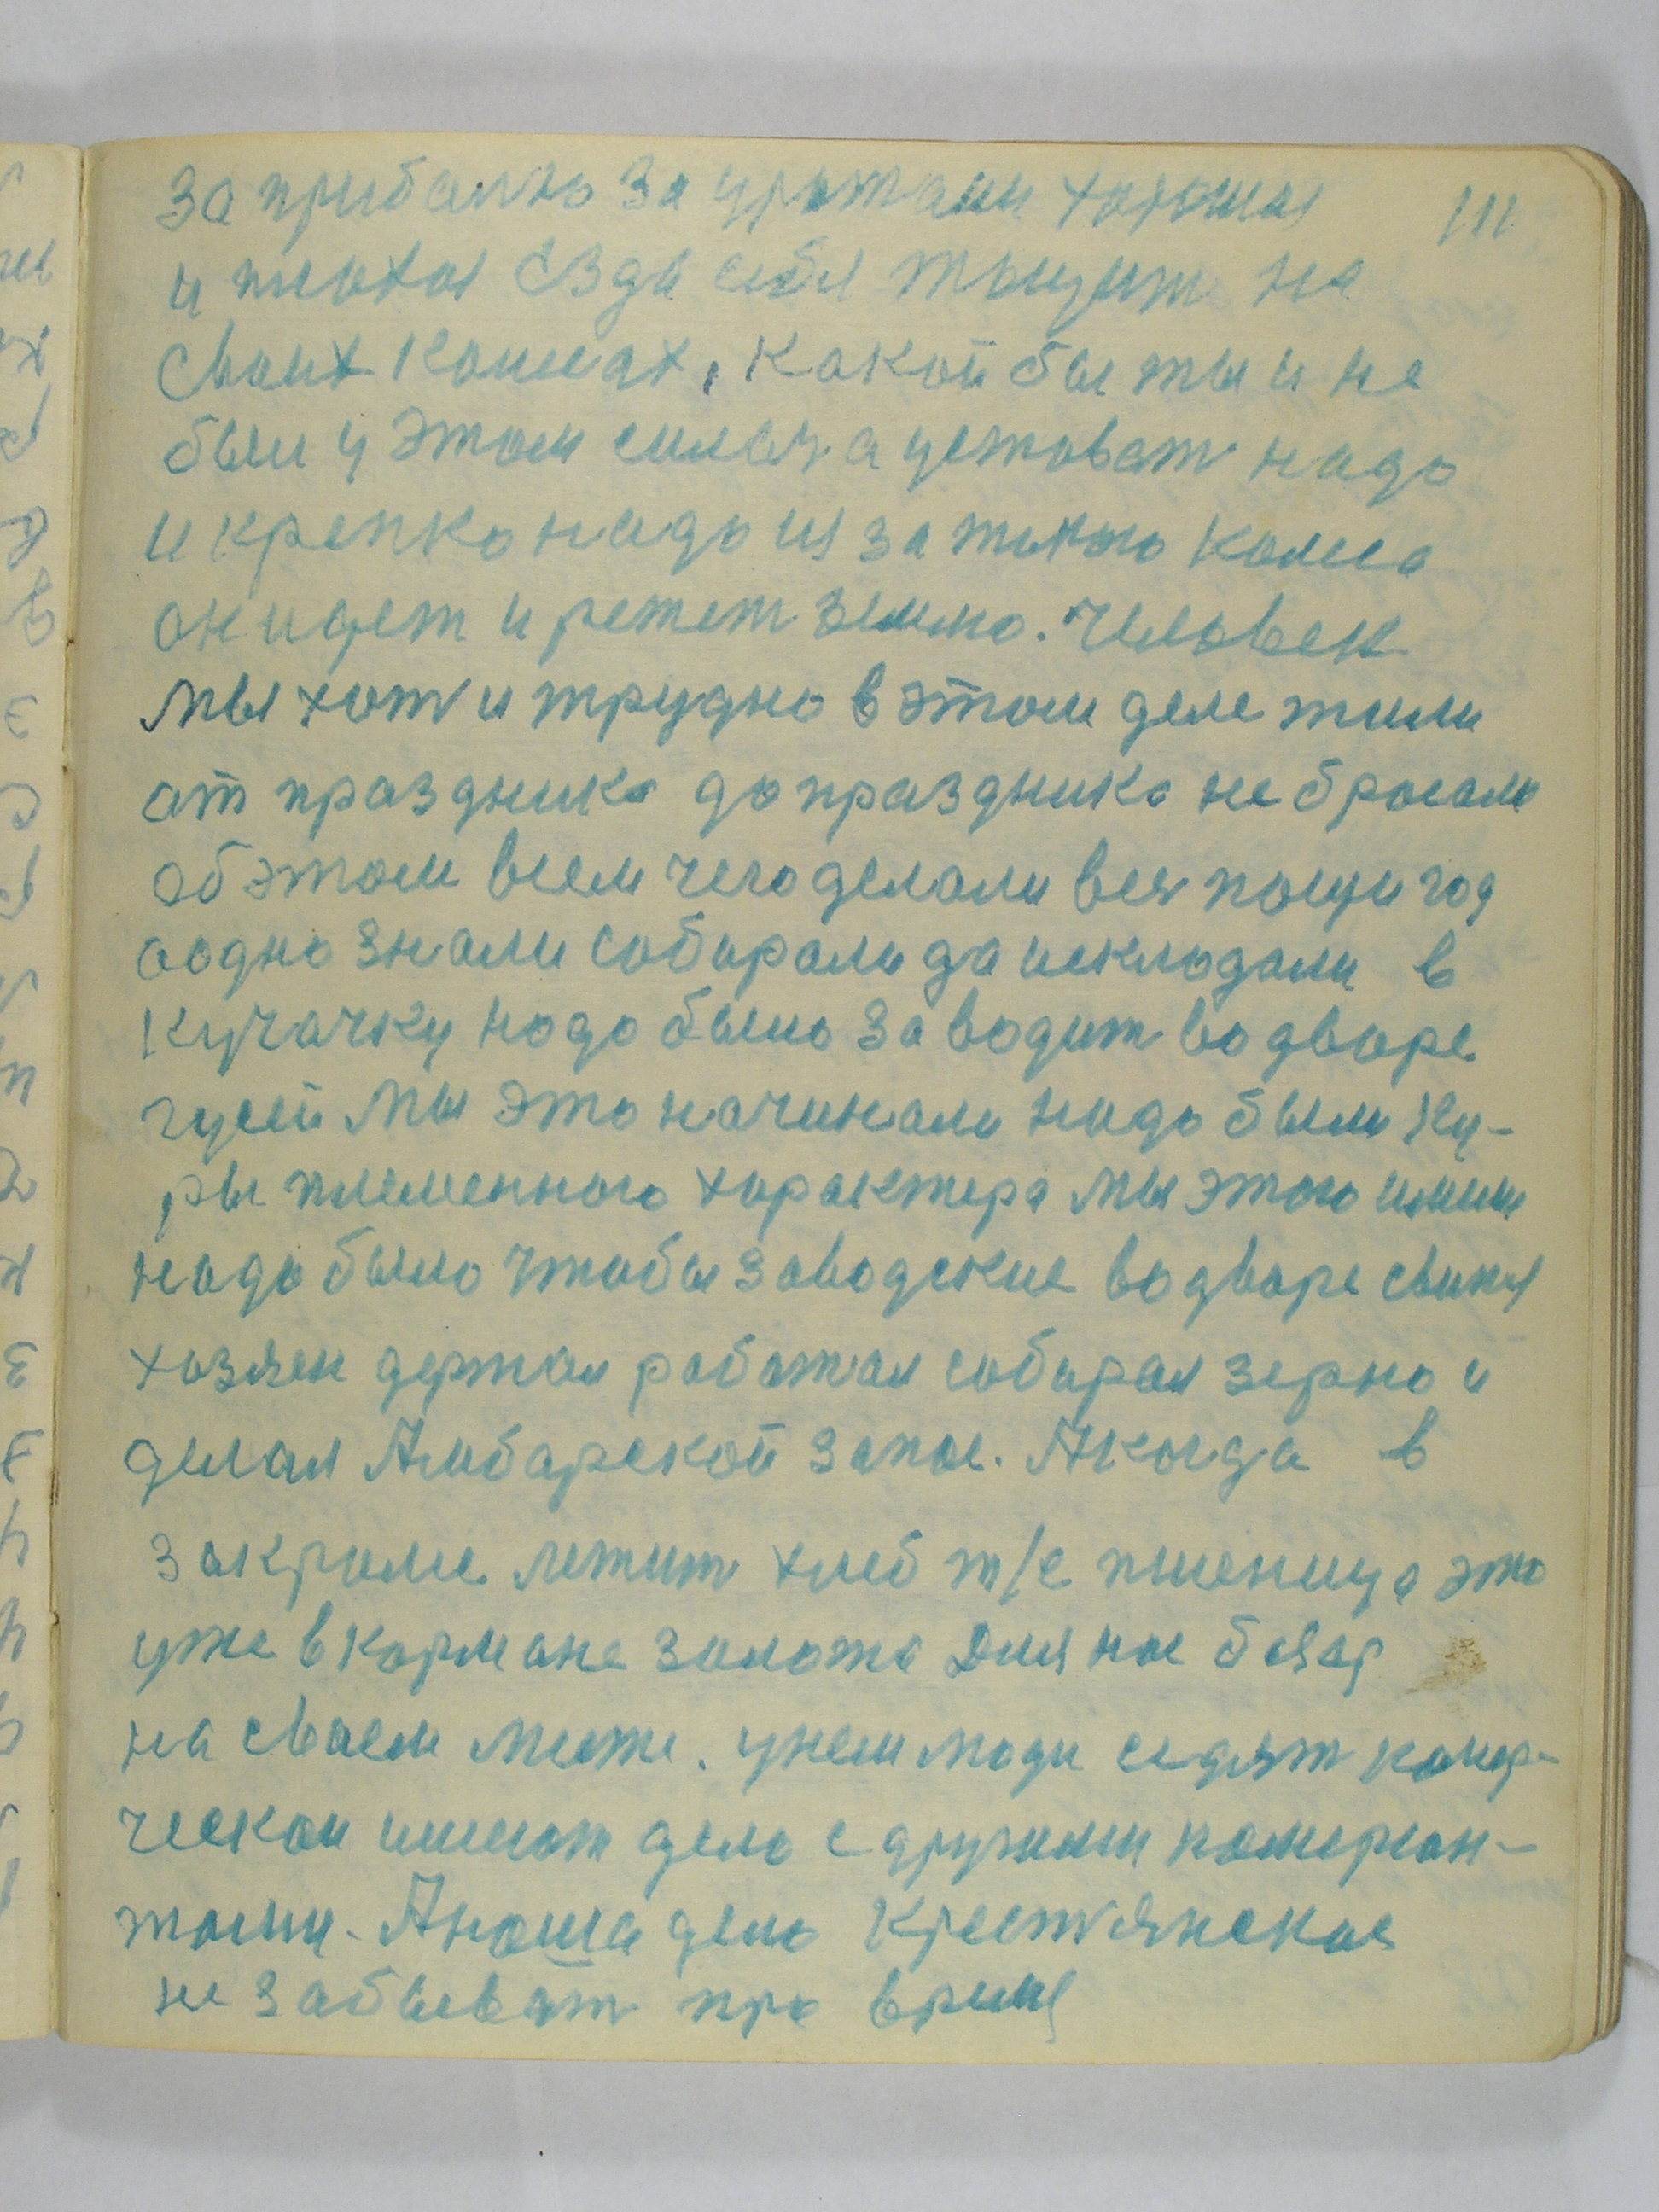 за прибально за урожаем хорошия 111
и плохая езда себя тащит на
своих колесах, какой бы ты и не
были у этом силач а уставать надо
и крепко надо из за этого колеса
он идет и режет землю. Человек
мы хоть и трудно в этом деле жили
от праздника до праздника не бросали
об этом всем чего делали вся почци год
аодно знали собирали да искладали в
кучачку надо было заводит во дворе
гусей мы это начинали надо были ку-
ры племенного характера мы этого имели
надо было чтобы заводские во дворе свиня
хозяен держал работал собирал зерно и
делал Амбарской запас. Акогда в
закроме лежит хлеб т/е пшеница это
уже в кармане золото Для нас базар
на своем месте. унем люди седят комер-
ческои имеют дело с другими комерсан-
тами. Анаша дело Крестьянская
не забывать про время